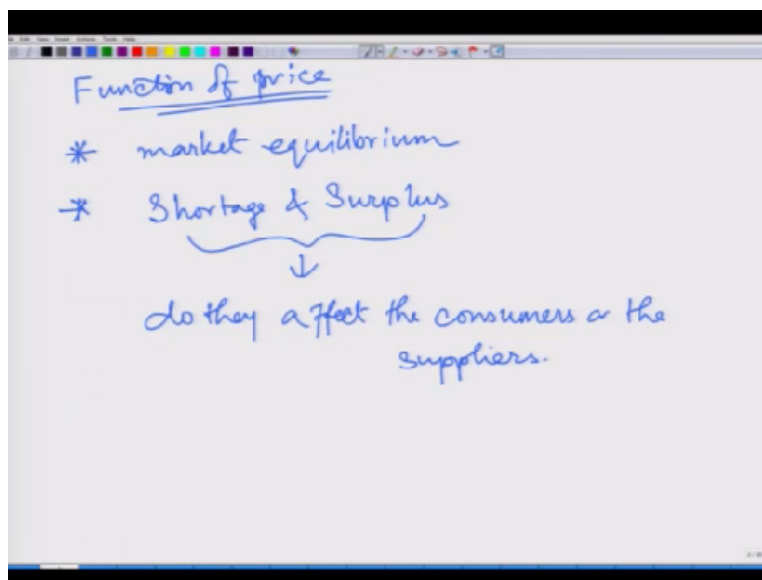 Function of price
* market equilibrium
* Shortage & Surplus
do they affect the consumers or the
suppliers.